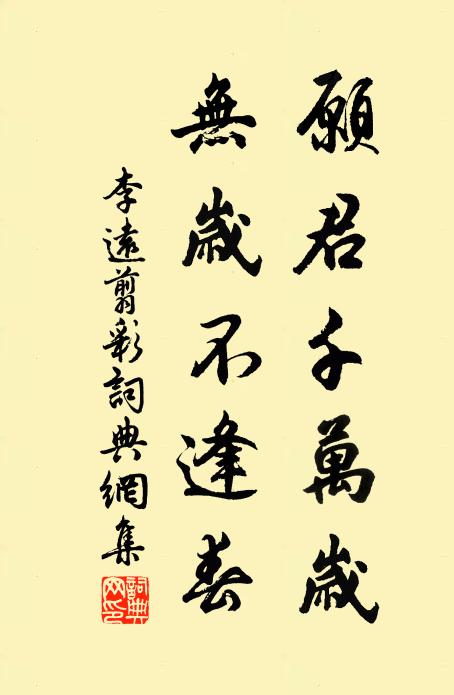 願君千萬歲
無歲不逢春
李遠翦彩詞典網集
詞典網印